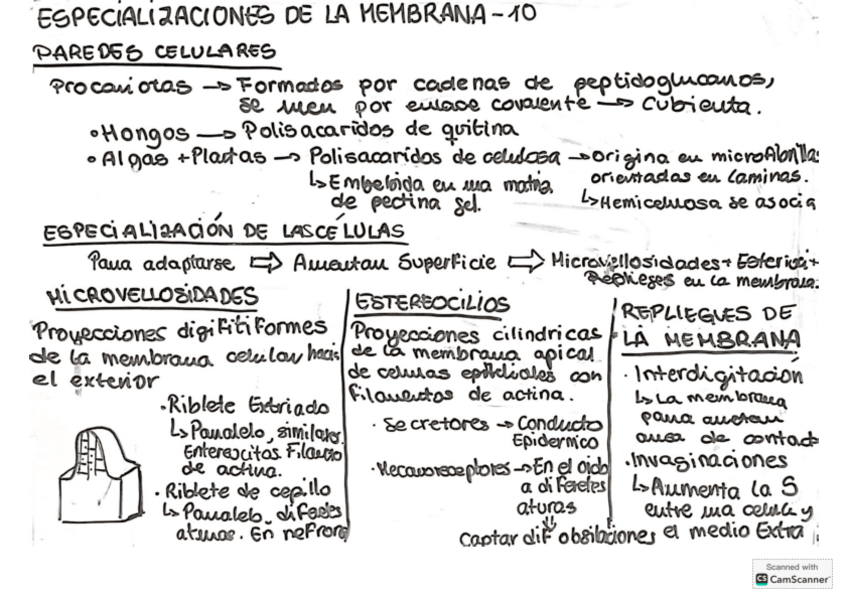 ESPECIALIZACIONES DE LA MEMBRANA - 10
PAREDES CELULARES
Procariotas → Formados por cadenas de peptidoglucanos,
se unen por enlace covalente → Cubierta.
• Hongos → Polisacaridos de quitina
• Algas + Plantas → Polisacaridos de celulosa → Origina en microfibrillas
orientadas en laminas.
↳ Embebida en una matriz
de pectina gel.
↳ Hemicelulosa se asocia
ESPECIALIZACIÓN DE LAS CÉLULAS
Para adaptarse ⇨ Aumentan Superficie ⇨ Microvellosidades +
Repliegues en la membrana.
MICROVELLOSIDADES
Proyecciones digitiformes
de la membrana celular hacia
el exterior
• Riblete Estriado
↳ Paralelo, similares.
Enterocitos Filamento
de actina.
• Riblete de cepillo
↳ Paralelo, diferentes
alturas. En nefrona
ESTEREOCILIOS
Proyecciones cilindricas
de la membrana apical
de celulas epiteliales con
filamentos de actina.
• Secretores → Conducto
Epidermico
• Mecanoreceptores → En el oido
a diferentes
alturas
⇓
Captar dif
REPLIEGUES DE
LA MEMBRANA
• Interdigitación
↳ La membrana
para
de contact
• Invaginaciones
↳ Aumenta la S
entre una celula y
el medio Extra
Scanned with
CS CamScanner